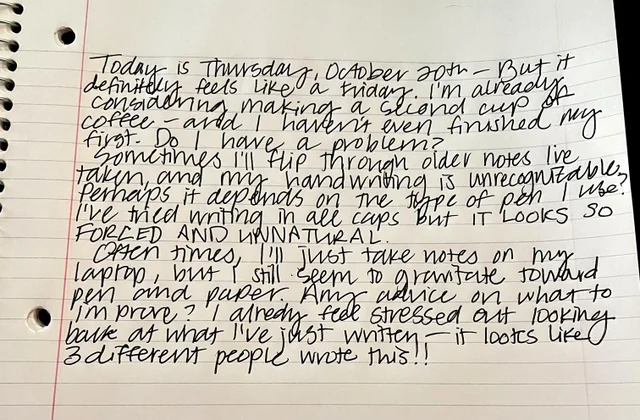 Today is Thursday, October 20th - But it
definitely feels like a Friday. I'm already
considering making a second cup of
coffee - and I haven't even finished my
first. Do I have a problem?
Sometimes I'll flip through older notes I've
taken, and my handwriting is unrecognizable.
Perhaps it depends on the type of pen I use?
I've tried writing in all caps but IT LOOKS SO
FORCED AND UNNATURAL.
Often times, I'll just take notes on my
laptop, but I still seem to gravitate toward
pen and paper. Any advice on what to
improve? I already feel stressed out looking
back at what I've just written - it looks like
3 different people wrote this!!